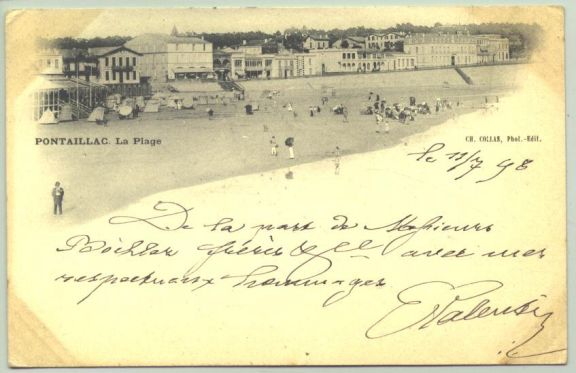 PONTAILLAC. La Plage
CH. COLLAS, Phot.-Edit.
le 13/7 98
De la part de Messieurs
frères & Cie avec mes
respectueux hommages